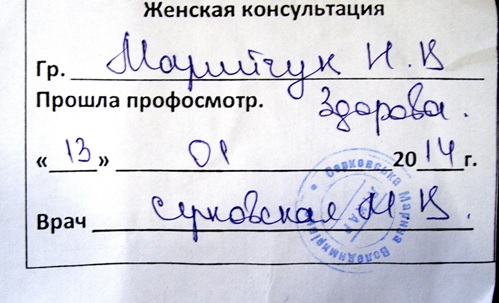 Женская консультация
Гр. Марийчук Н. В
Прошла профосмотр. Здорова.
« 13 » 01 2014 г.
Врач Серковская М В.
Серковська Марина Володимирівна
ЛІКАР